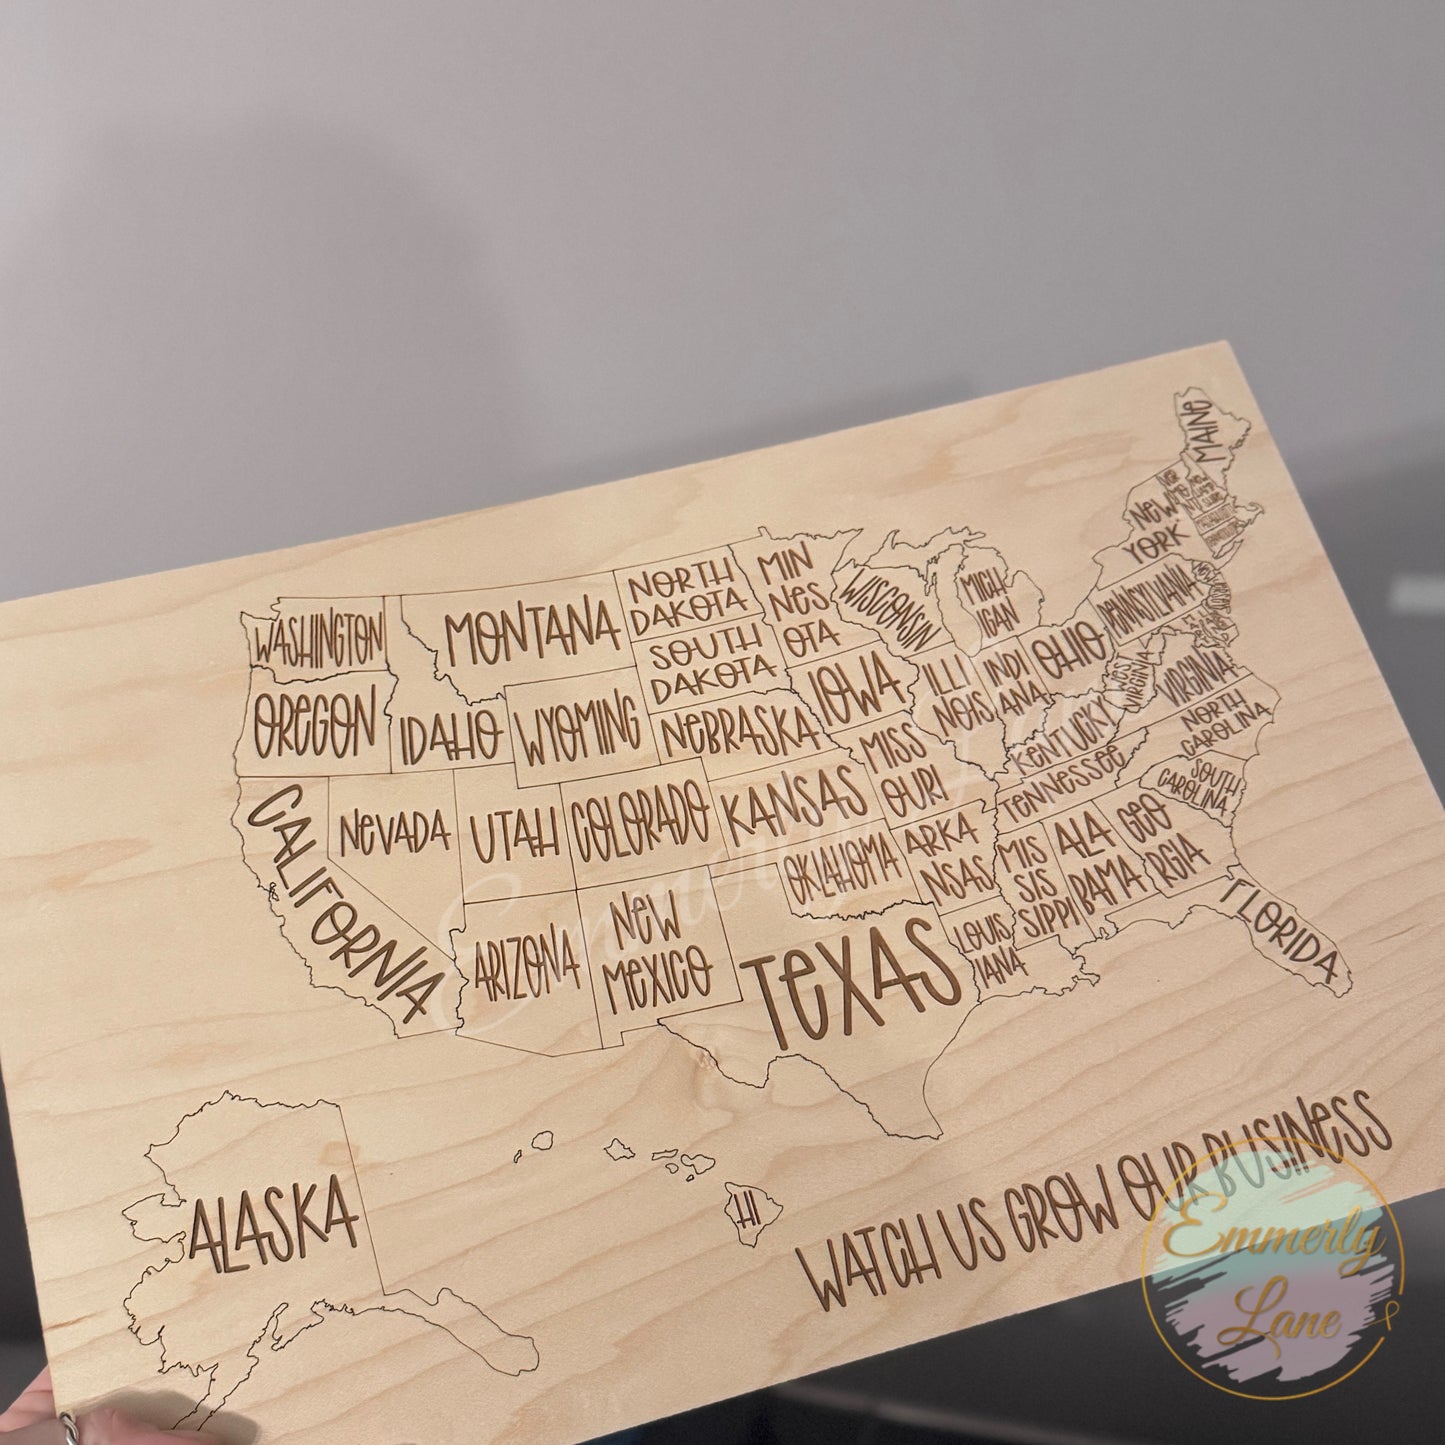 MAINE
NEW
YORK
WASHINGTON
MONTANA
NORTH
DAKOTA
MIN
NES
OTA
WISCONSIN
MICH
IGAN
PENNSYLVANIA
OREGON
IDAHO
WYOMING
SOUTH
DAKOTA
IOWA
ILLI
NOIS
INDI
ANA
OHIO
WEST
VIRGINIA
VIRGINIA
NEBRASKA
MISS
OURI
KENTUCKY
NORTH
CAROLINA
CALIFORNIA
NEVADA
UTAH
COLORADO
KANSAS
TENNESSEE
SOUTH
CAROLINA
ARIZONA
NEW
MEXICO
OKLAHOMA
ARKA
NSAS
MIS
SIS
SIPPI
ALA
BAMA
GEO
RGIA
TEXAS
LOUIS
IANA
FLORIDA
ALASKA
HI
WATCH US GROW OUR BUSINESS
Emmerly
Lane
Emmerly Lane